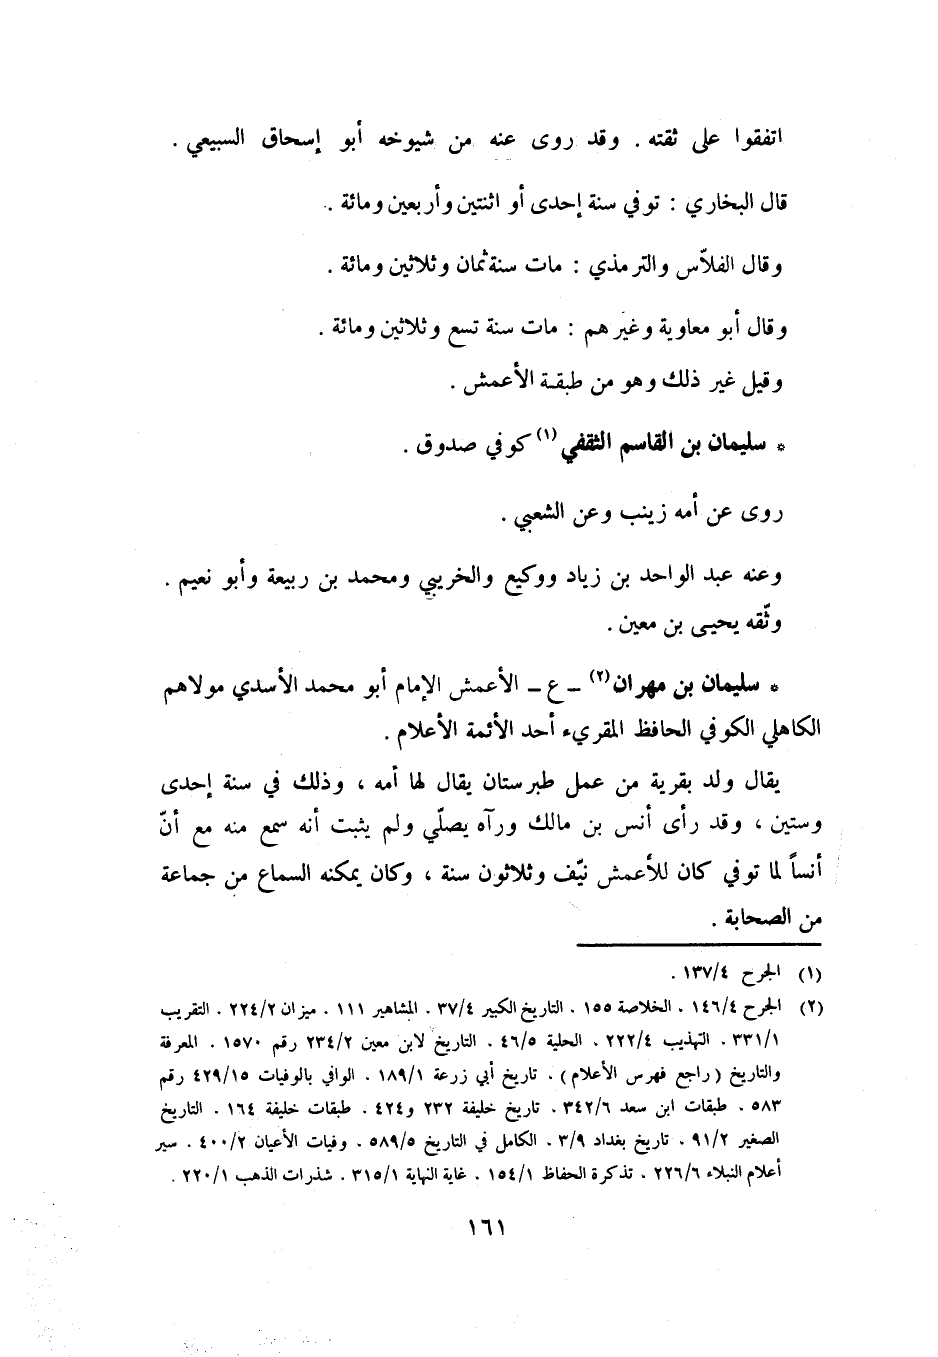 اتفقوا على ثقته . وقد روى عنه من شيوخه أبو إسحاق السبيعي .
قال البخاري : توفي سنة إحدى أو اثنتين وأربعين ومائة .
وقال الفلاّس والترمذي : مات سنة ثمان وثلاثين ومائة .
وقال أبو معاوية وغيرهم : مات سنة تسع وثلاثين ومائة .
وقيل غير ذلك وهو من طبقة الأعمش .
* سليمان بن القاسم الثقفي (١) كوفي صدوق .
روى عن أمه زينب وعن الشعبي .
وعنه عبد الواحد بن زياد ووكيع والخريبي ومحمد بن ربيعة وأبو نعيم .
وثّقه يحيى بن معين .
* سليمان بن مهران (٢) ـ ع ـ الأعمش الإمام أبو محمد الأسدي مولاهم
الكاهلي الكوفي الحافظ المقريء أحد الأئمة الأعلام .
يقال ولد بقرية من عمل طبرستان يقال لها أمه ، وذلك في سنة إحدى
وستين ، وقد رأى أنس بن مالك ورآه يصلّي ولم يثبت أنه سمع منه مع أنّ
أنساً لما توفي كان للأعمش نيّف وثلاثون سنة ، وكان يمكنه السماع من جماعة
من الصحابة .
(١) الجرح ١٣٧/٤ .
(٢) الجرح ١٤٦/٤ . الخلاصة ١٥٥ . التاريخ الكبير ٣٧/٤ . المشاهير ١١١ . ميزان ٢٢٤/٢ . التقريب
٣٣١/١ . التهذيب ٢٢٢/٤ . الحلية ٤٦/٥ . التاريخ لابن معين ٢٣٤/٢ رقم ١٥٧٠ . المعرفة
والتاريخ (راجع فهرس الأعلام) . تاريخ أبي زرعة ١٨٩/١ . الوافي بالوفيات ٤٢٩/١٥ رقم
٥٨٣ . طبقات ابن سعد ٣٤٢/٦ . تاريخ خليفة ٢٣٢ و٤٢٤ . طبقات خليفة ١٦٤ . التاريخ
الصغير ٩١/٢ . تاريخ بغداد ٣/٩ . الكامل في التاريخ ٥٨٩/٥ . وفيات الأعيان ٤٠٠/٢ . سير
أعلام النبلاء ٢٢٦/٦ . تذكرة الحفاظ ١٥٤/١ . غاية النهاية ٣١٥/١ . شذرات الذهب ٢٢٠/١ .
١٦١